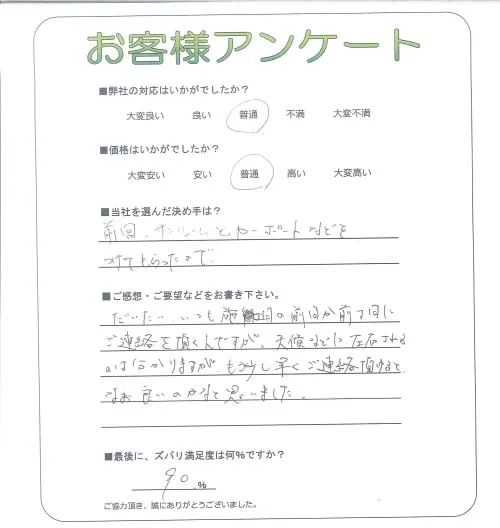 お客様アンケート
■弊社の対応はいかがでしたか？
大変良い 良い 普通 不満 大変不満
■価格はいかがでしたか？
大変安い 安い 普通 高い 大変高い
■当社を選んだ決め手は？
前回、サンルームとカーポートなどを
つけてもらったので
■ご感想・ご要望などをお書き下さい。
だいたい、いつも施工の前日か前々日に
ご連絡を頂くんですが、天候などに左右される
のは分かりますが、もう少し早くご連絡頂けると
なお良いのかなと思いました。
■最後に、ズバリ満足度は何％ですか？
90 ％
ご協力頂き、誠にありがとうございました。